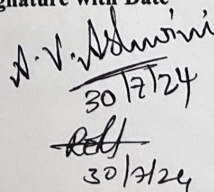 Signature with Date
A. V. Ashwini
30/7/24
30/7/24